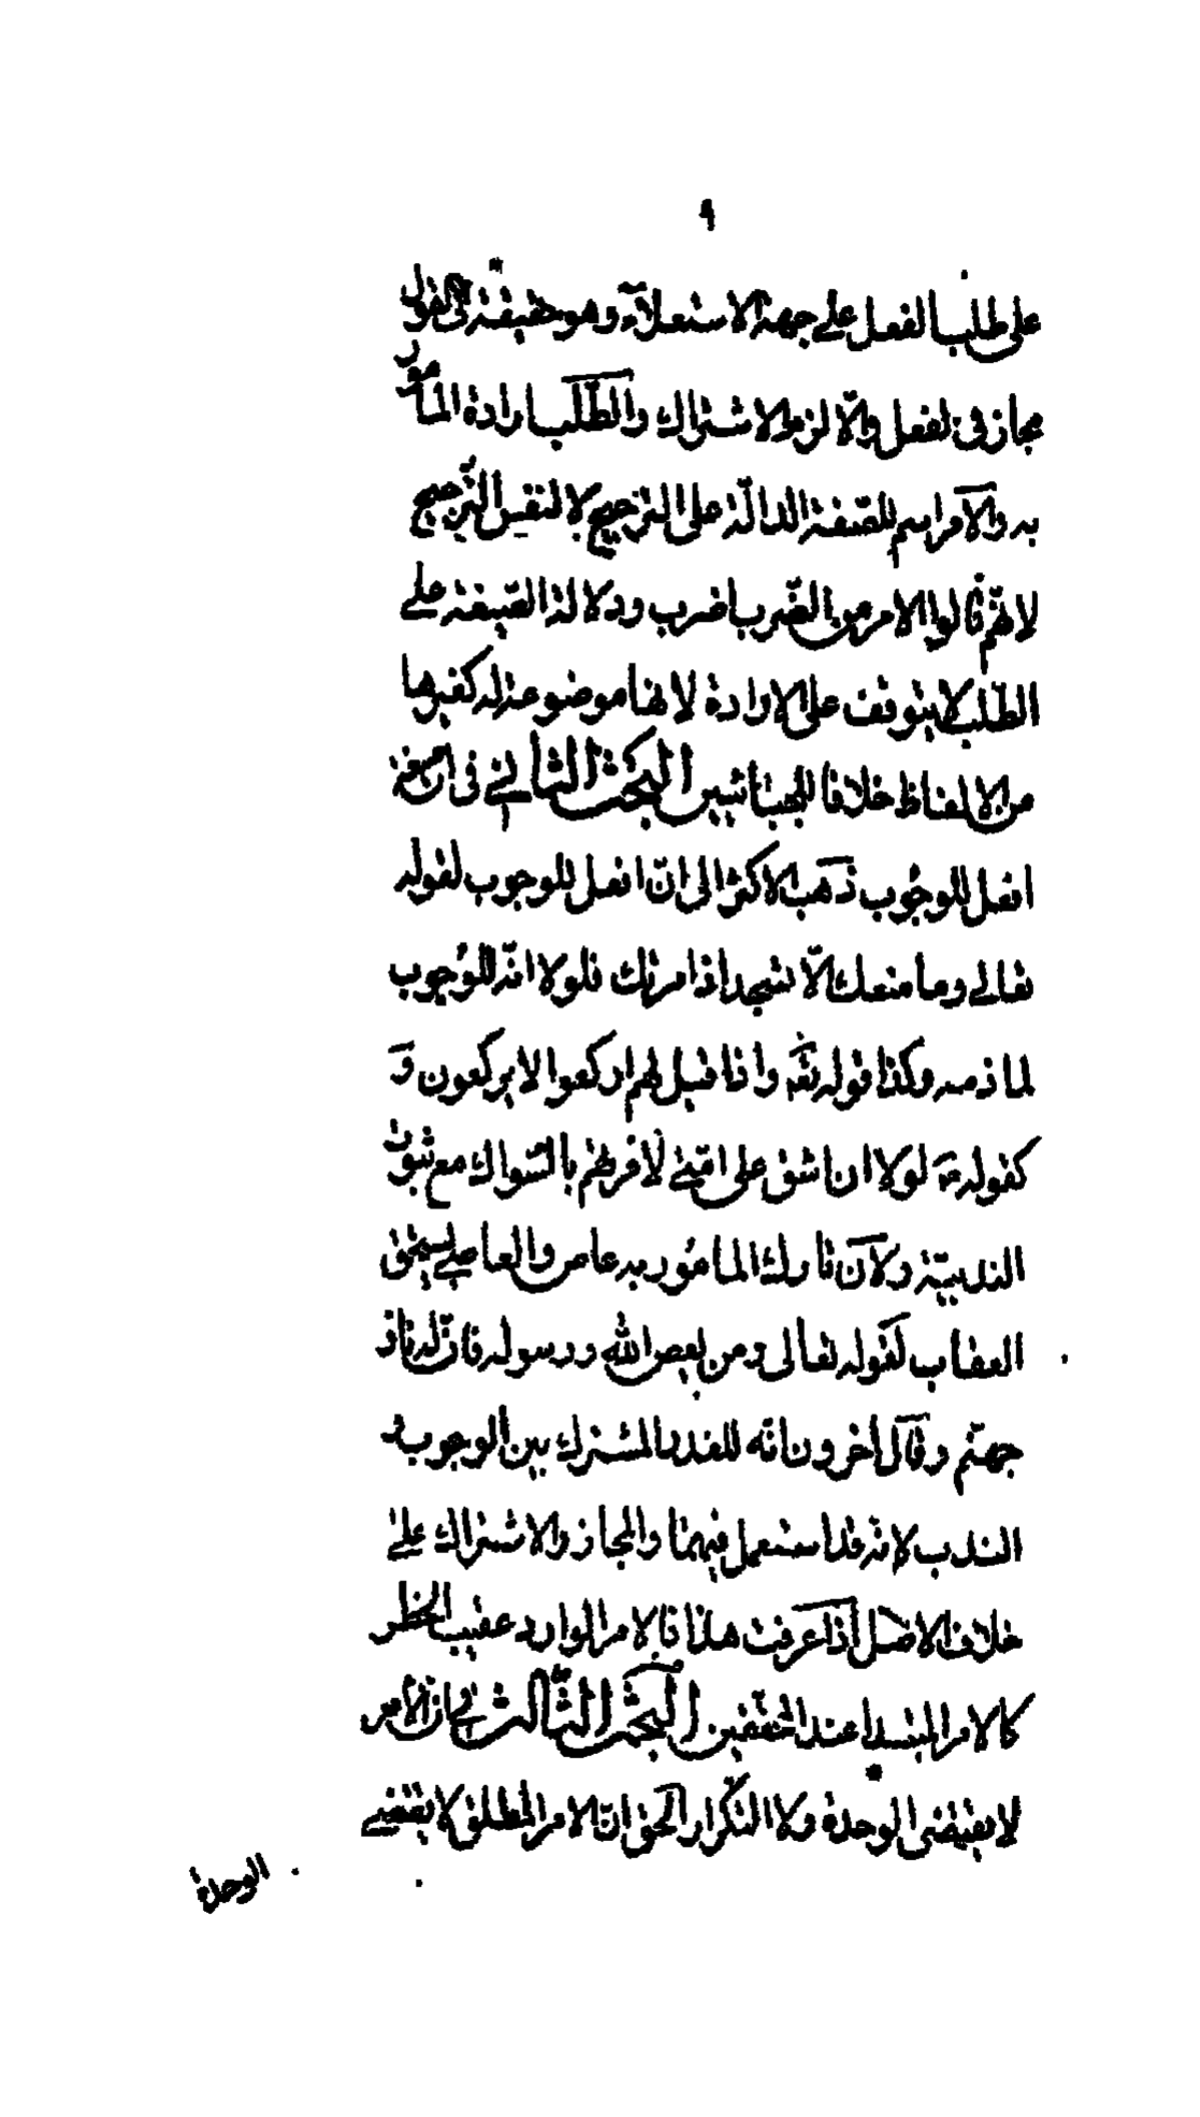 ٩
على طلب الفعل على جهة الاستعلآء وهو حقيقة فى القول
مجاز فى الفعل والّا لزم الاشتراك والطّلب ارادة المأمور
به والأمر اسم للصّيغة الدالّة على الترجيح لا لنفس التّرجيح
لانّهم قالوا الامر من الضّرب اضرب ودلالة الصّيغة على
الطّلب لا يتوقف على الارادة لانها موضوعة له كغيرها
من الالفاظ خلافا للجبائيين البحث الثانى فى ان صيغة
افعل للوجُوب ذهب الاكثر الى انّ افعل للوجوب لقوله
تعالى وما منعك الّا تسجد اذ امرتك فلولا انّه للوُجوب
لما ذمه وكذا قوله تعَ واذا قيل لهم اركعوا لا يركعون وَ
كقوله عَ لولا ان اشق على امّتى لأمرتهم بالسّواك مع ثبوت
الندبيّة ولأن تارك المامُور به عاص والعاصى يستحق
العقاب لقوله تعالى ومن يعص الله ورسوله فانّ له نار
جهنّم وقال اخرون انّه للقدر المشترك بين الوجوب و
الندب لانّه قد استعمل فيهما والمجاز والاشتراك على
خلاف الاصل اذا عرفت هذا فالامر الوارد عقيب الحظر
كالامر المبتدا عند المحققين البحث الثّالث فى ان الأمر
لا يقتضى الوحدة ولا التكرار الحق انّ الامر المطلق لا يقتضى
الوحدة